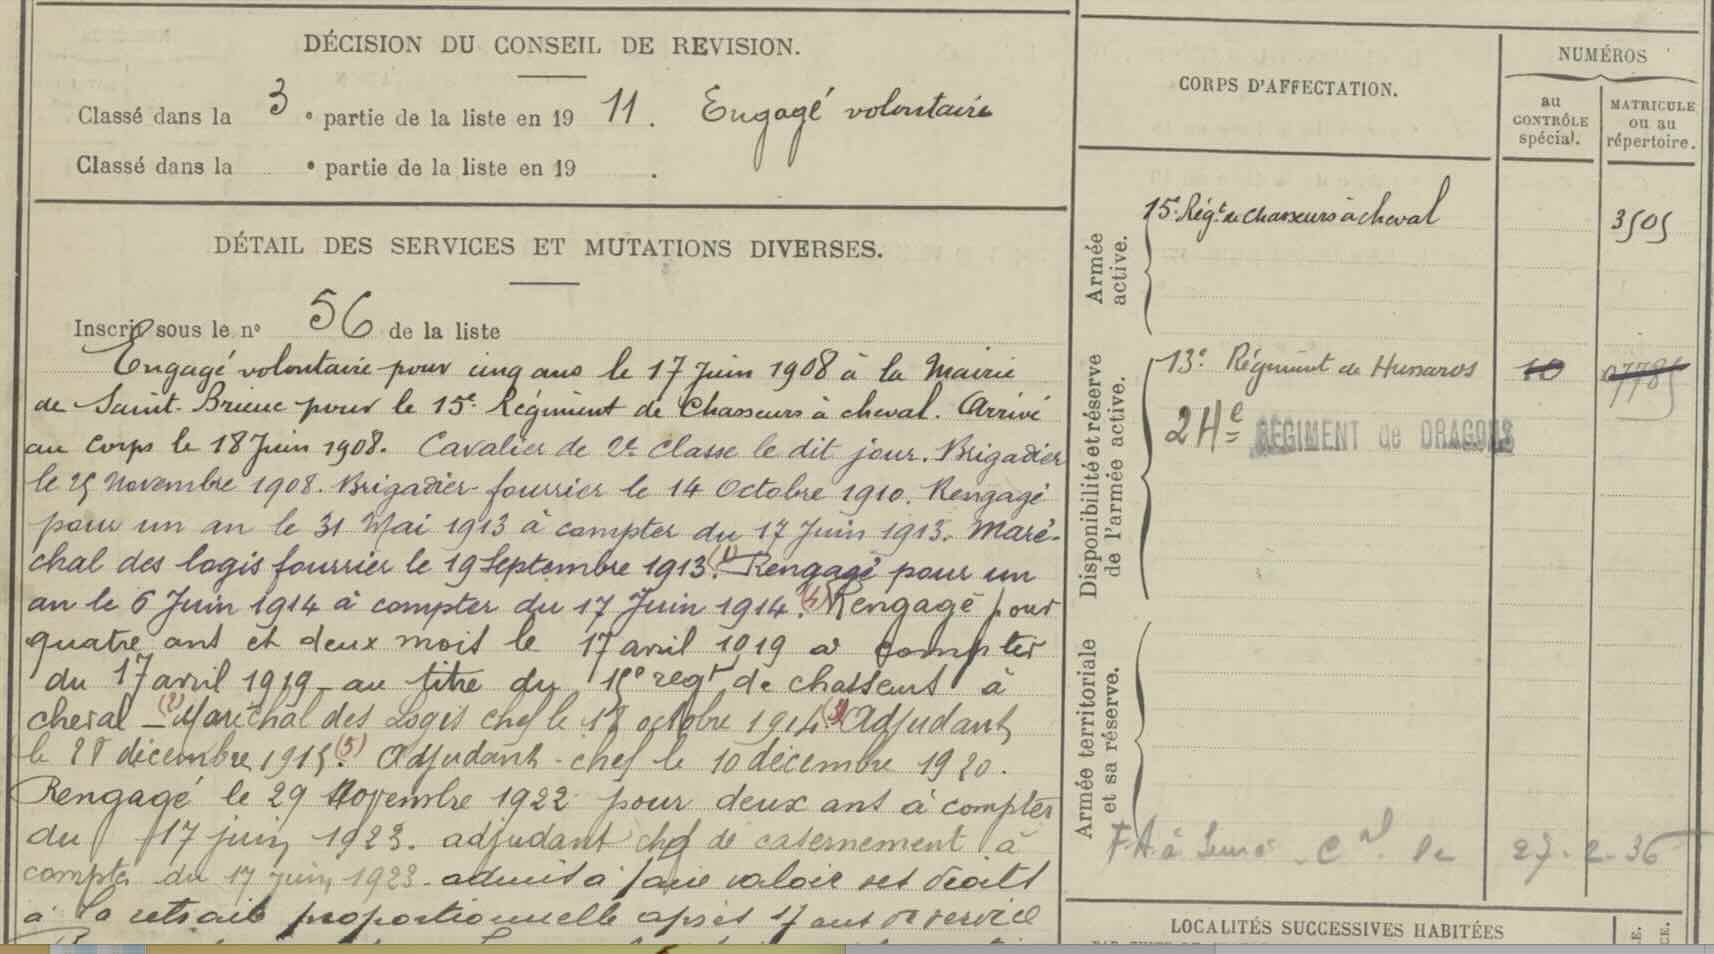 DÉCISION DU CONSEIL DE REVISION.
Classé dans la 3 e partie de la liste en 1911. Engagé volontaire
Classé dans la e partie de la liste en 19 .
DÉTAIL DES SERVICES ET MUTATIONS DIVERSES.
Inscrit sous le n° 56 de la liste
Engagé volontaire pour cinq ans le 17 Juin 1908 à la Mairie
de Saint-Brieuc pour le 15e Régiment de Chasseurs à cheval. Arrivé
au corps le 18 Juin 1908. Cavalier de 2e classe le dit jour. Brigadier
le 25 Novembre 1908. Brigadier-fourrier le 14 Octobre 1910. Rengagé
pour un an le 31 Mai 1913 à compter du 17 Juin 1913. Maré-
chal des logis fourrier le 19 Septembre 1913.(1) Rengagé pour un
an le 6 Juin 1914 à compter du 17 Juin 1914.(4) Rengagé pour
quatre ans et deux mois le 17 avril 1919 à compter
du 17 avril 1919 au titre du 15e regt de chasseurs à
cheval -(2) Maréchal des Logis chef le octobre 1914(3) Adjudant
le décembre 1915.(5) Adjudant-chef le 10 décembre 1920.
Rengagé le 29 Novembre 1922 pour deux ans à compter
du 17 juin 1923. adjudant chef de casernement à
compter du 17 juin 1923. admis à faire valoir ses droits
à la retraite proportionnelle après 17 ans de service
CORPS D'AFFECTATION.
NUMÉROS
au CONTRÔLE spécial.
MATRICULE ou au répertoire.
Armée active.
15e Régt de Chasseurs à cheval 3505
Disponibilité et réserve de l'armée active.
13e Régiment de Hussards 10 07785
24e RÉGIMENT de DRAGONS
Armée territoriale et sa réserve.
F.A. à le 27-2-36
LOCALITÉS SUCCESSIVES HABITÉES